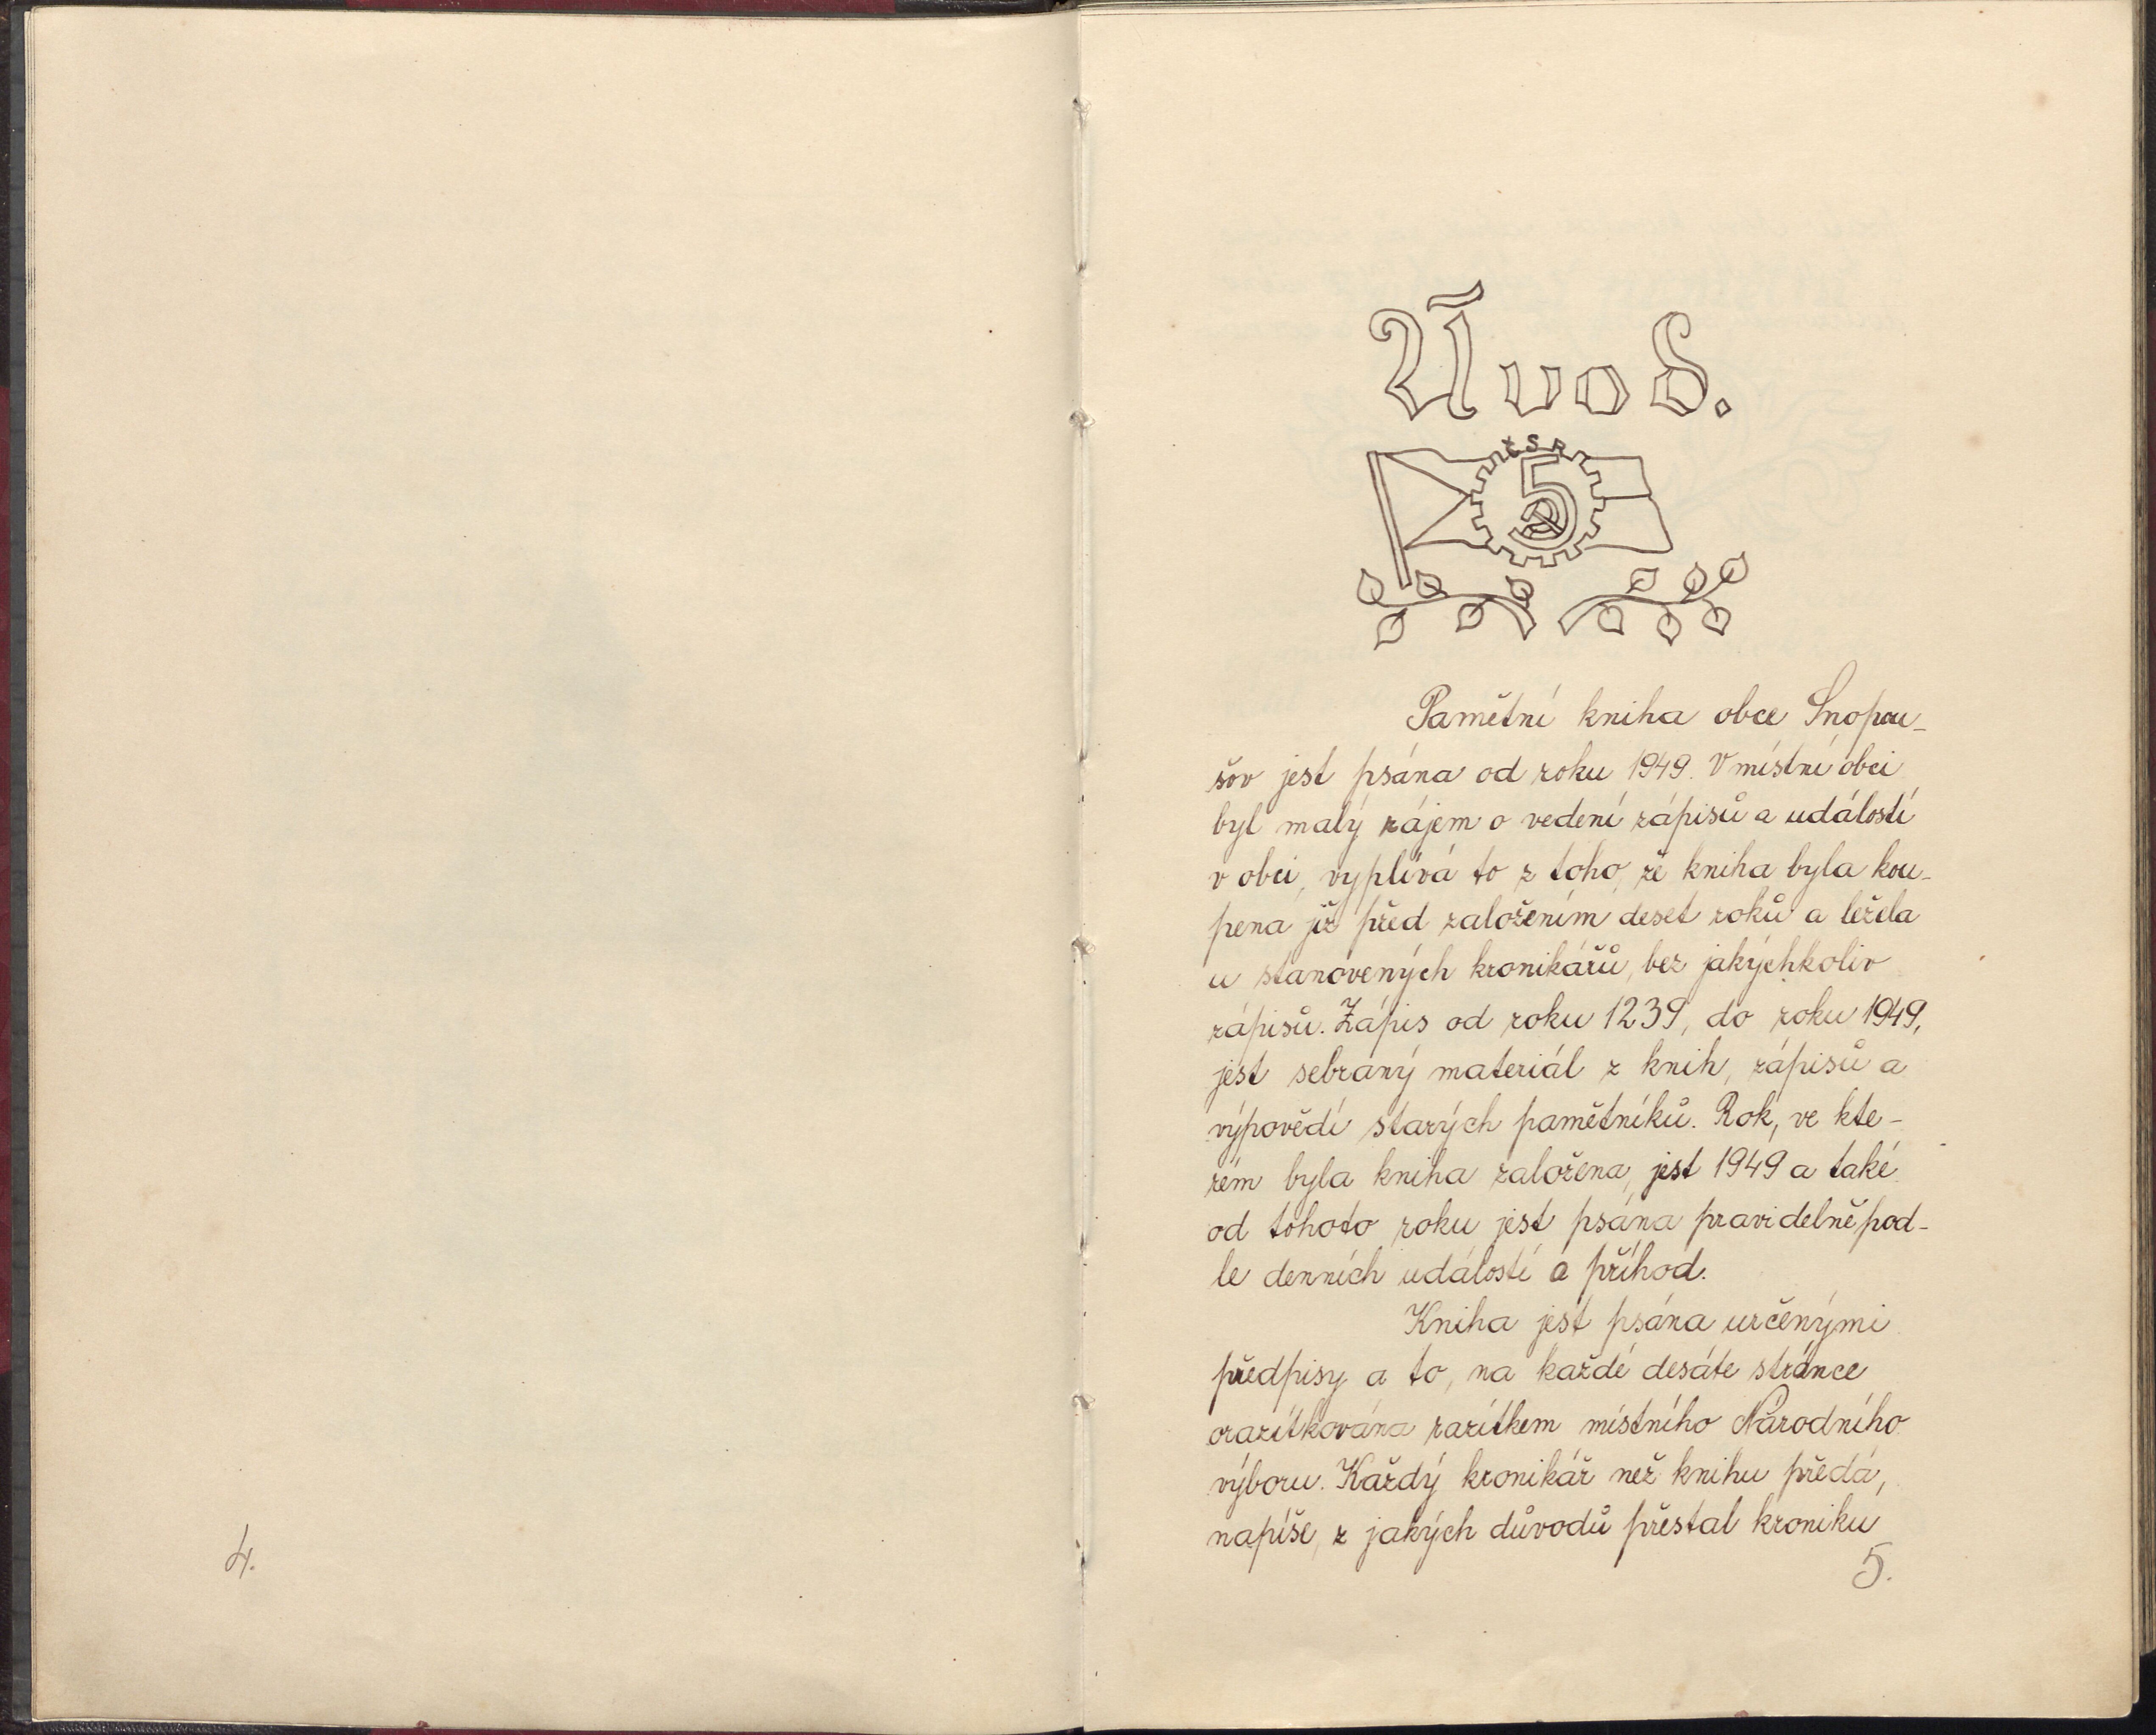 4.
Úvod.
ČSR
5
Pamětní kniha obce Snopou-
šov jest psána od roku 1949. V místní obci
byl malý zájem o vedení zápisů a událostí
v obci, vyplívá to z toho, že kniha byla kou-
pena již před založením deset roků a ležela
u stanovených kronikářů, bez jakýchkoliv
zápisů. Zápis od roku 1239, do roku 1949,
jest sebraný materiál z knih, zápisů a
výpovědí starých pamětníků. Rok, ve kte-
rém byla kniha založena, jest 1949 a také
od tohoto roku jest psána pravidelně pod-
le denních událostí a příhod.
Kniha jest psána určenými
předpisy a to, na každé desáte stránce
orazítkována razítkem místního Národního
výboru. Každý kronikář než knihu předá,
napíše, z jakých důvodů přestal kroniku
5.